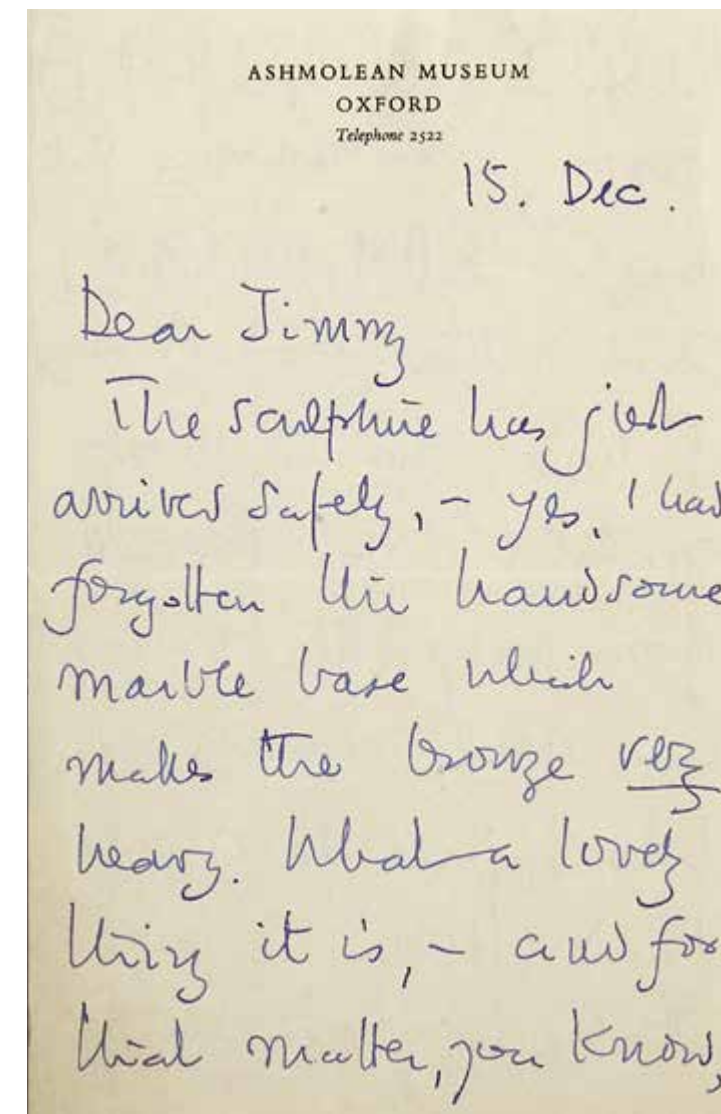 ASHMOLEAN MUSEUM
OXFORD
Telephone 2522
15. Dec.
Dear Jimmy
The sculpture has just
arrived safely, – yes, I had
forgotten the handsome
marble base which
makes the bronze very
heavy. What a lovely
thing it is, – and for
that matter, you know,